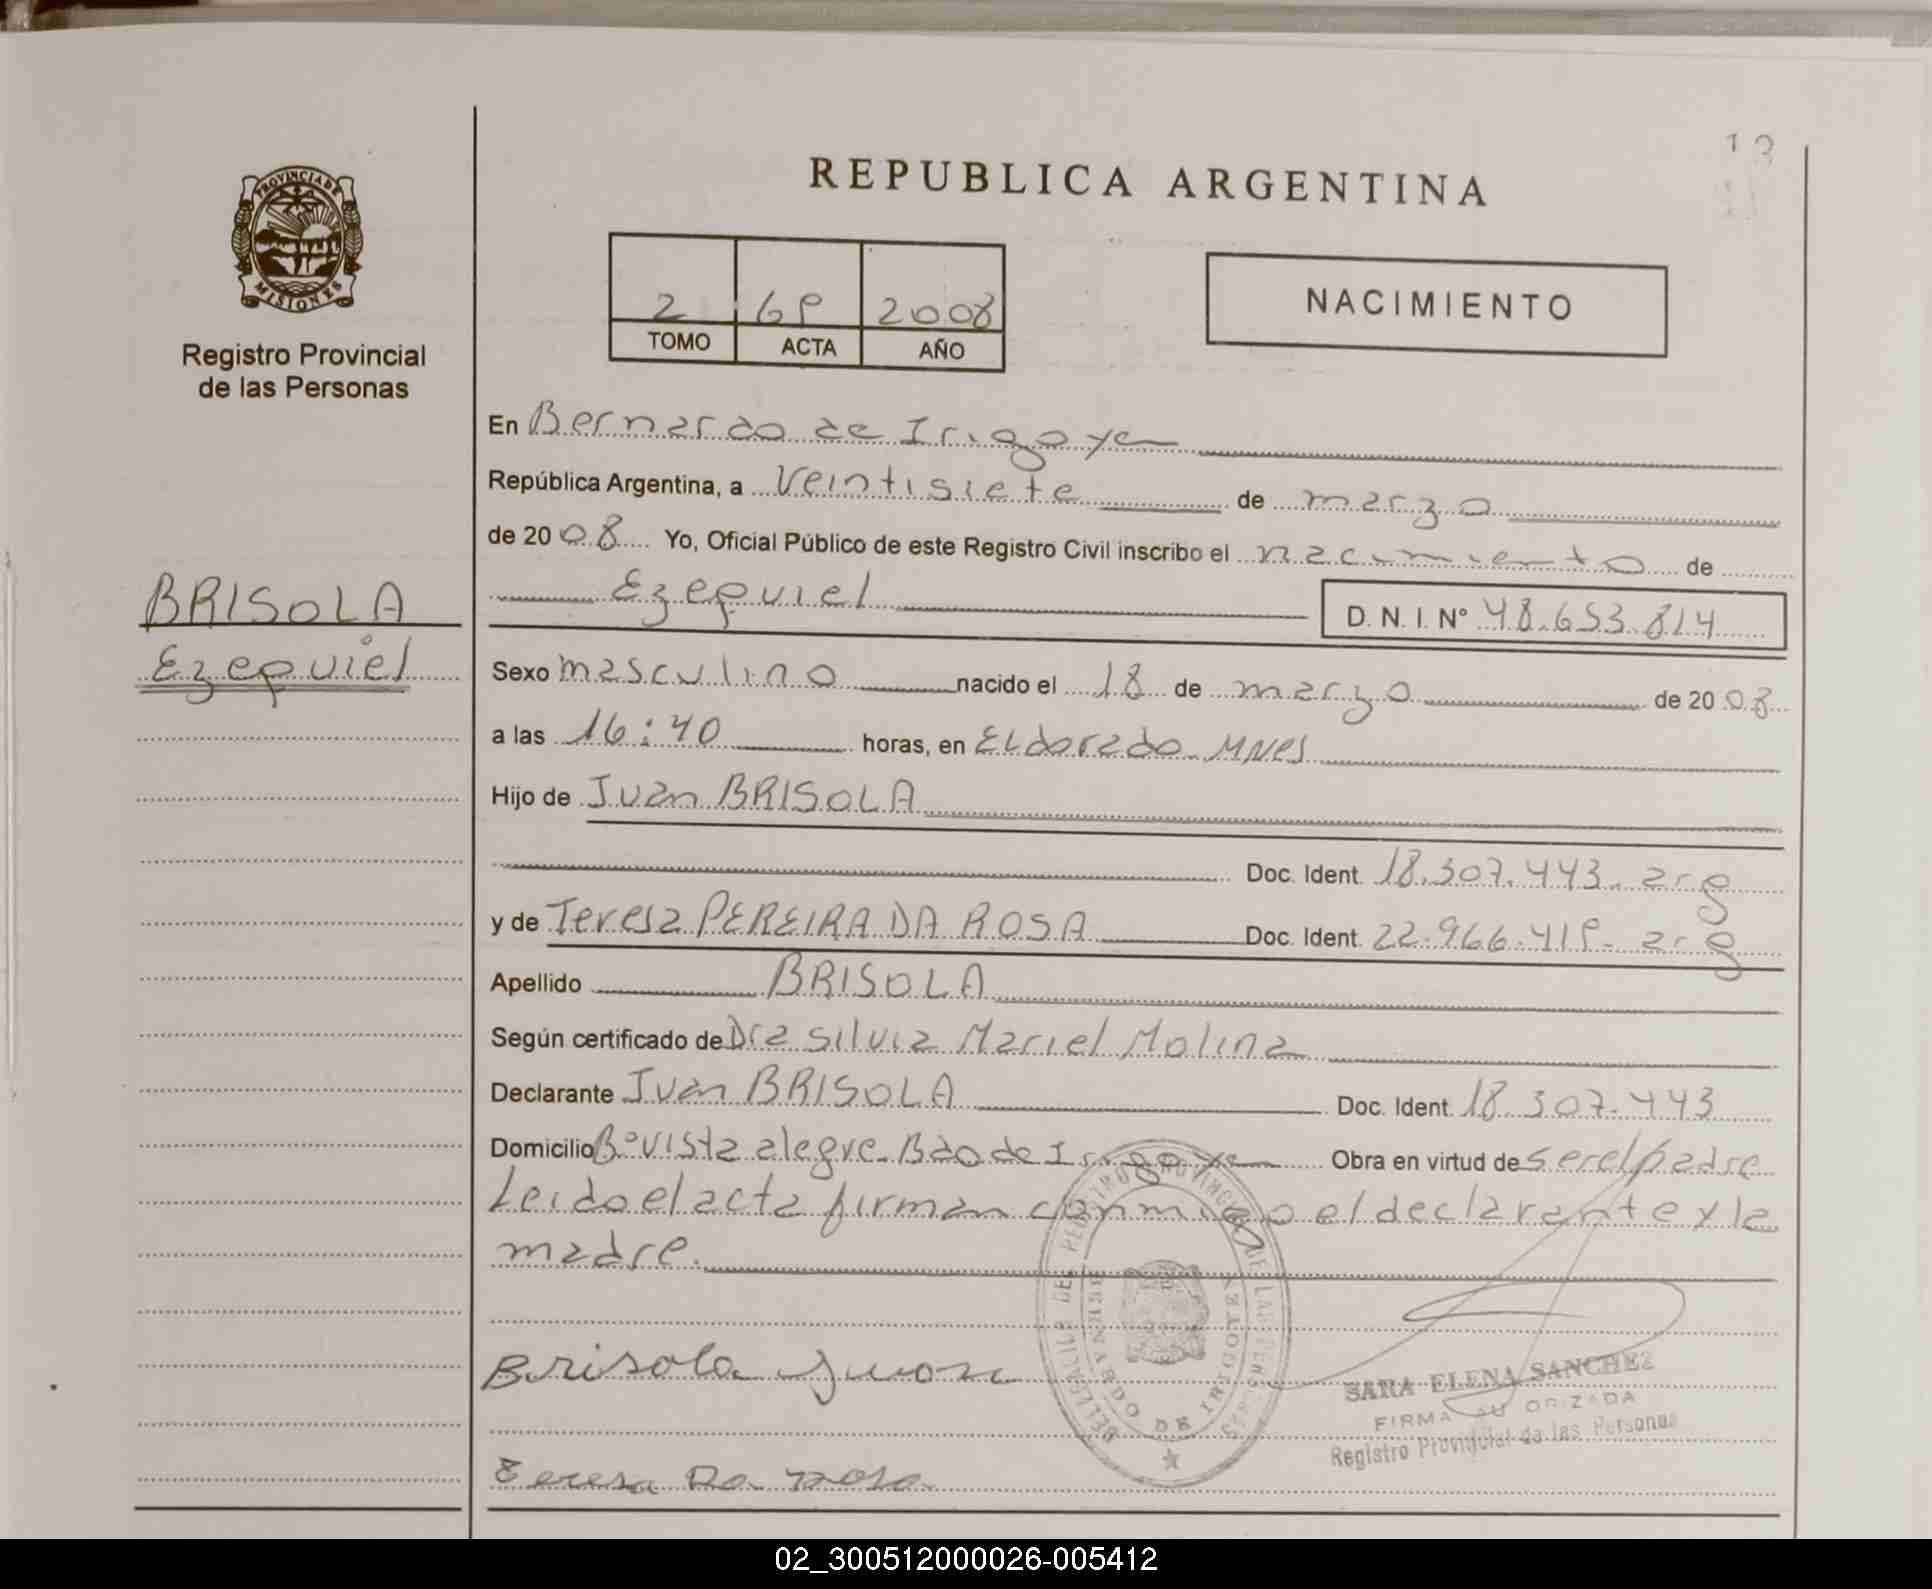 PROVINCIA DE
MISIONES
Registro Provincial
de las Personas
BRISOLA
Ezequiel
REPUBLICA ARGENTINA
2 69 2008
TOMO ACTA AÑO
NACIMIENTO
En Bernardo de Irigoyen
República Argentina, a Veintisiete de marzo
de 2008 Yo, Oficial Público de este Registro Civil inscribo el nacimiento de
Ezequiel D. N. I. Nº 48.653.814
Sexo masculino nacido el 18 de marzo de 2008
a las 16:40 horas, en Eldorado Mnes
Hijo de Juan BRISOLA
Doc. Ident. 18.307.443. arg
y de Teresa PEREIRA DA ROSA Doc. Ident. 22.966.419- arg
Apellido BRISOLA
Según certificado de Dra Silvia Mariel Molina
Declarante Juan BRISOLA Doc. Ident. 18.307.443
Domicilio Bº Vista alegre. Bdo de Irigoyen Obra en virtud de ser el padre
Leido el acta firman conmigo el declarante y la
madre.
Brisola Juan
Teresa Da rosa
SARA ELENA SANCHEZ
FIRMA AUTORIZADA
Registro Provincial de las Personas
02_300512000026-005412